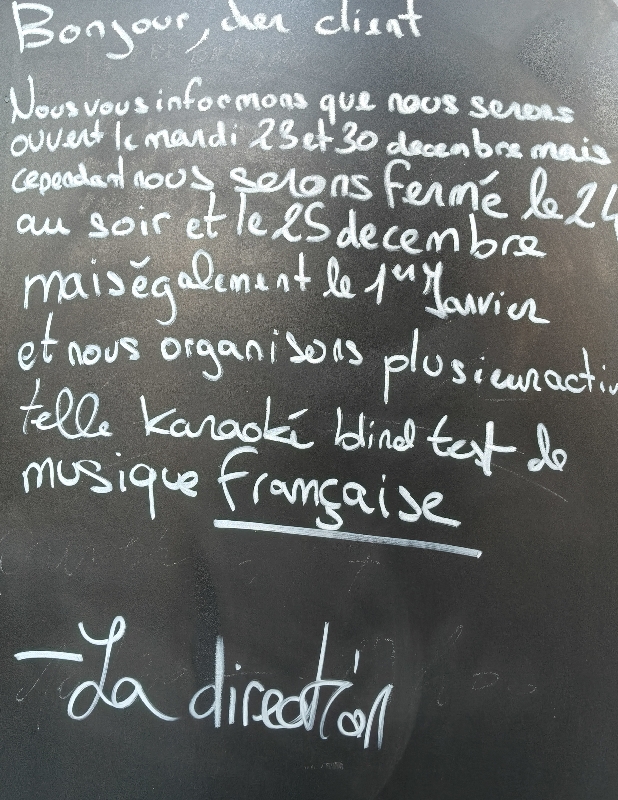 Bonjour, cher client
Nous vous informons que nous serons
ouvert le mardi 23 et 30 decembre mais
cependant nous serons fermé le 24
au soir et le 25 decembre
mais également le 1er Janvier
et nous organisons plusieur activ
telle karaoké blind test de
musique française
- La direction